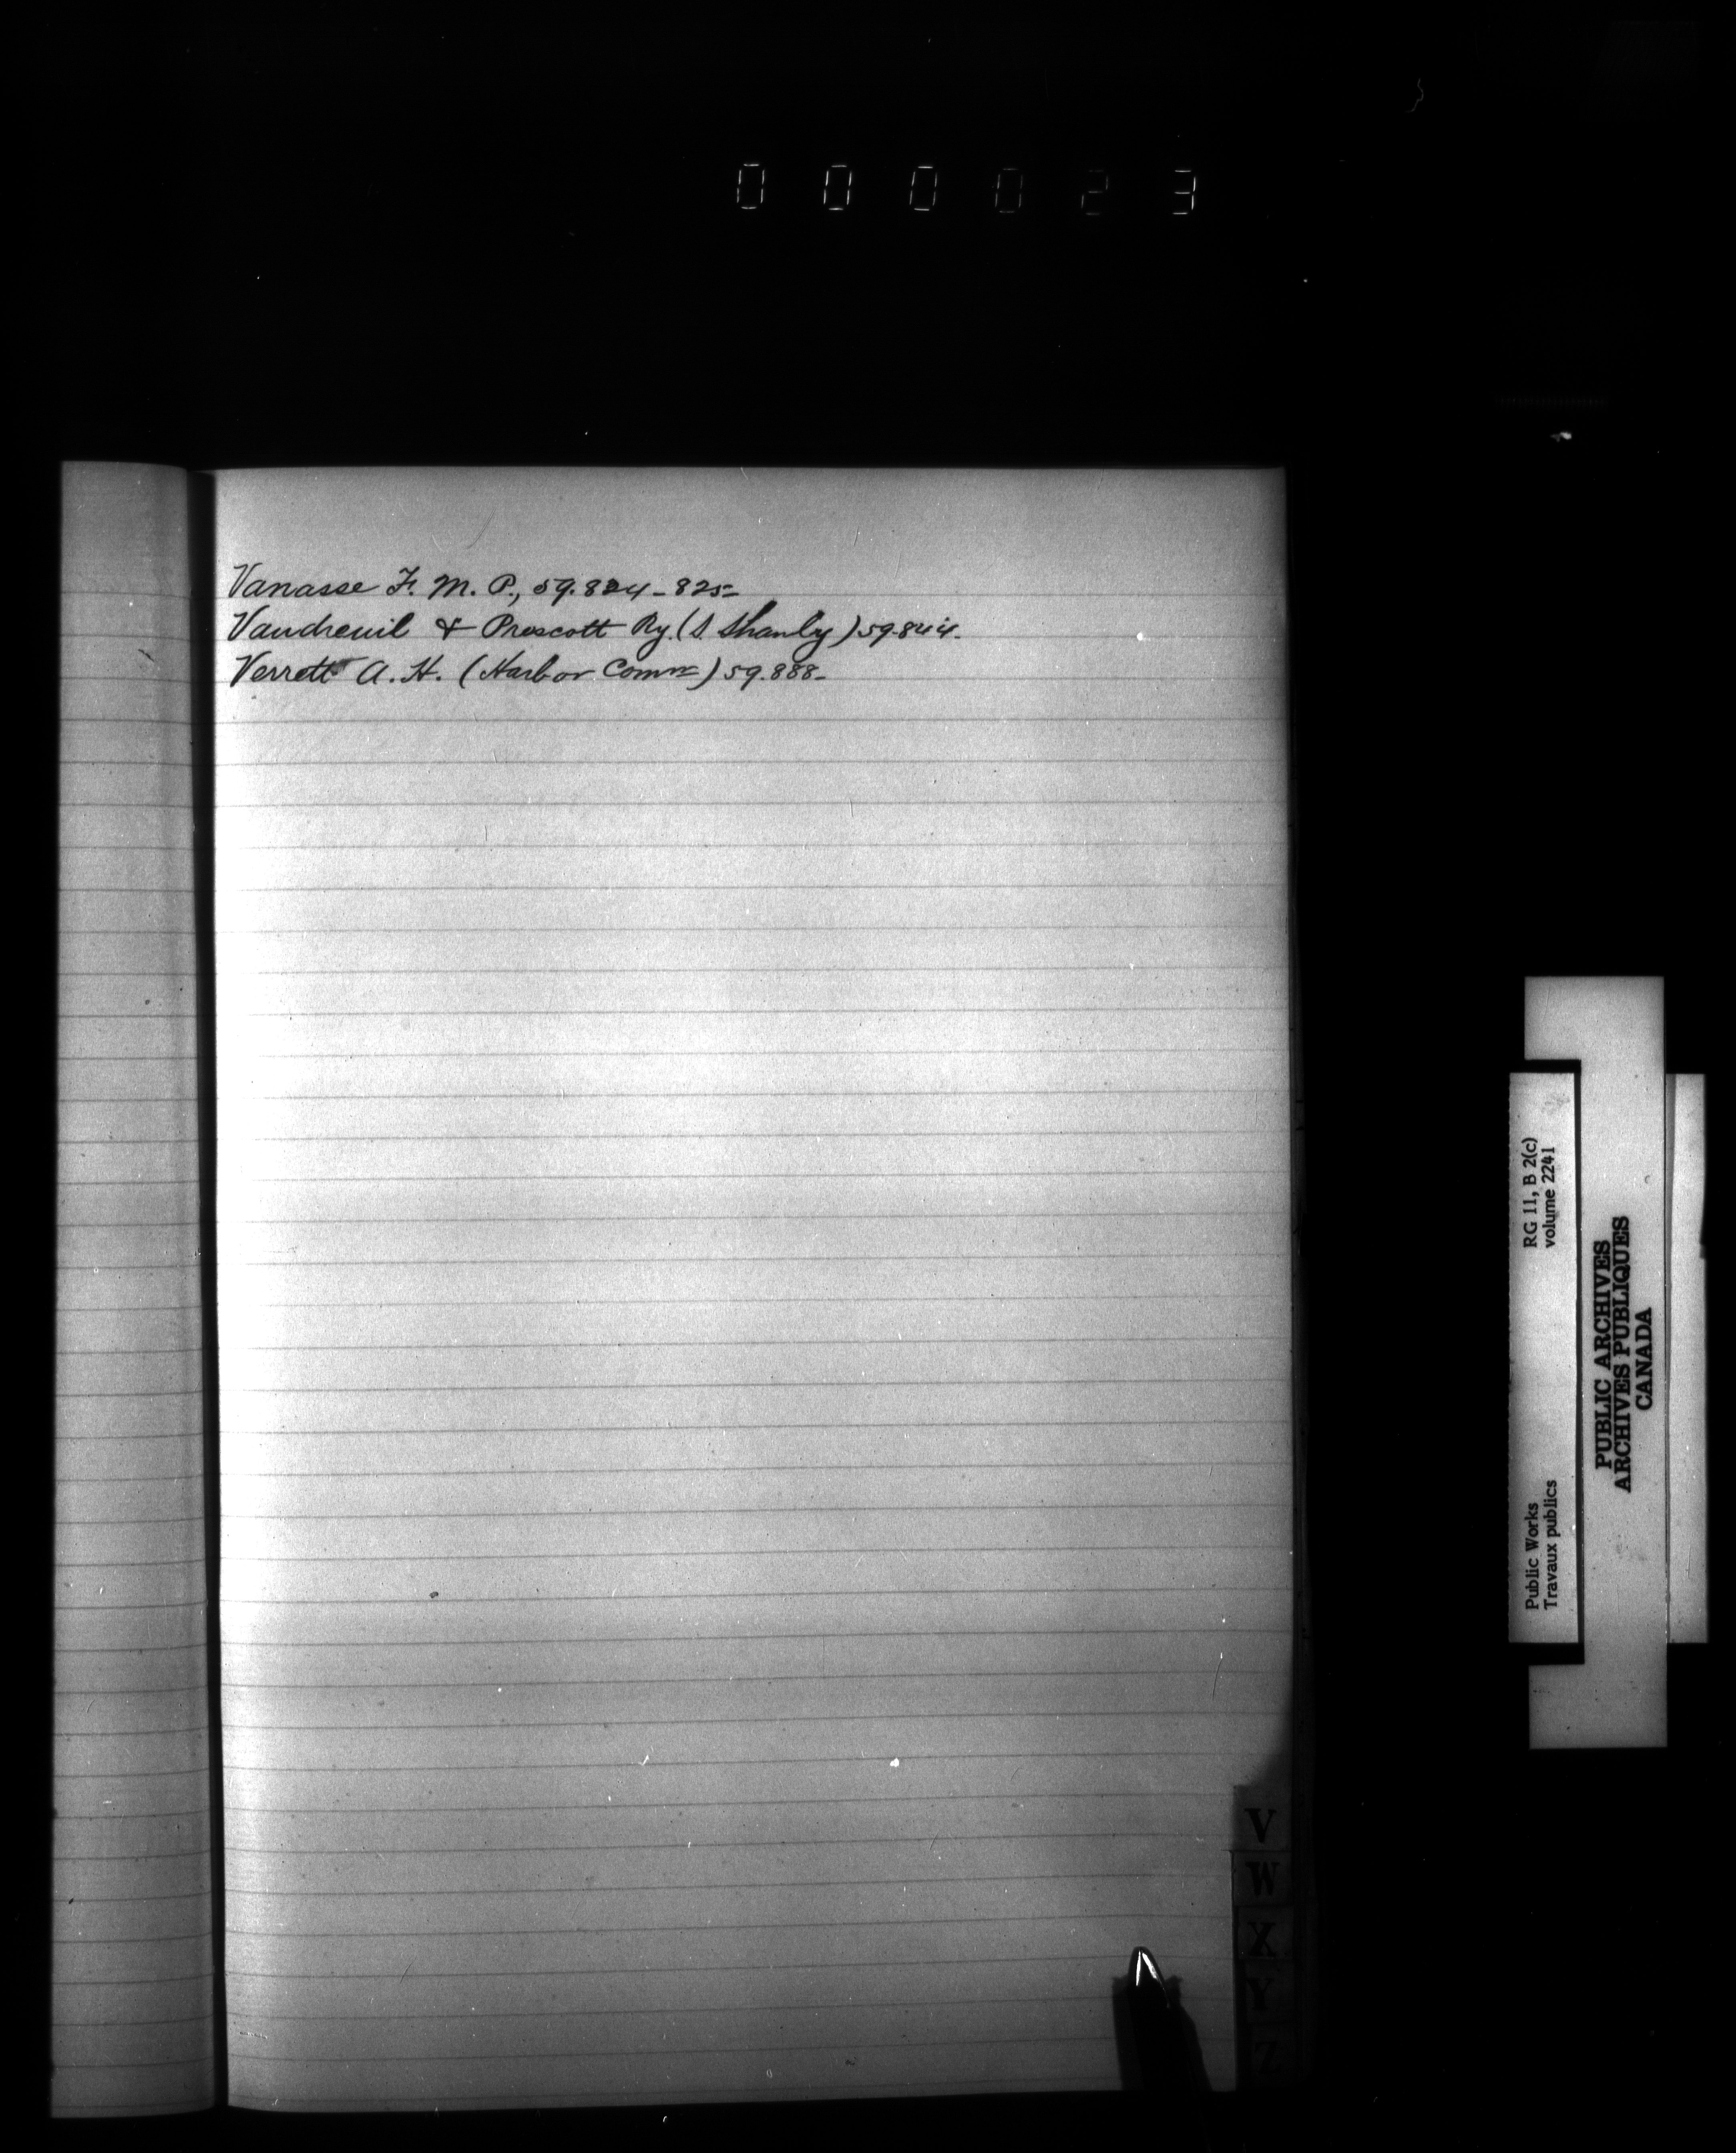 000023
Vanasse F. M. P., 59.824-825
Vaudreuil & Prescott Ry. (S. Shanly) 59.844.
Verrett A. H. (Harbor Comrs) 59.888.
RG 11, B 2(c)
volume 2241
Public Works
Travaux publics
PUBLIC ARCHIVES
ARCHIVES PUBLIQUES
CANADA
V
W
X
Y
Z